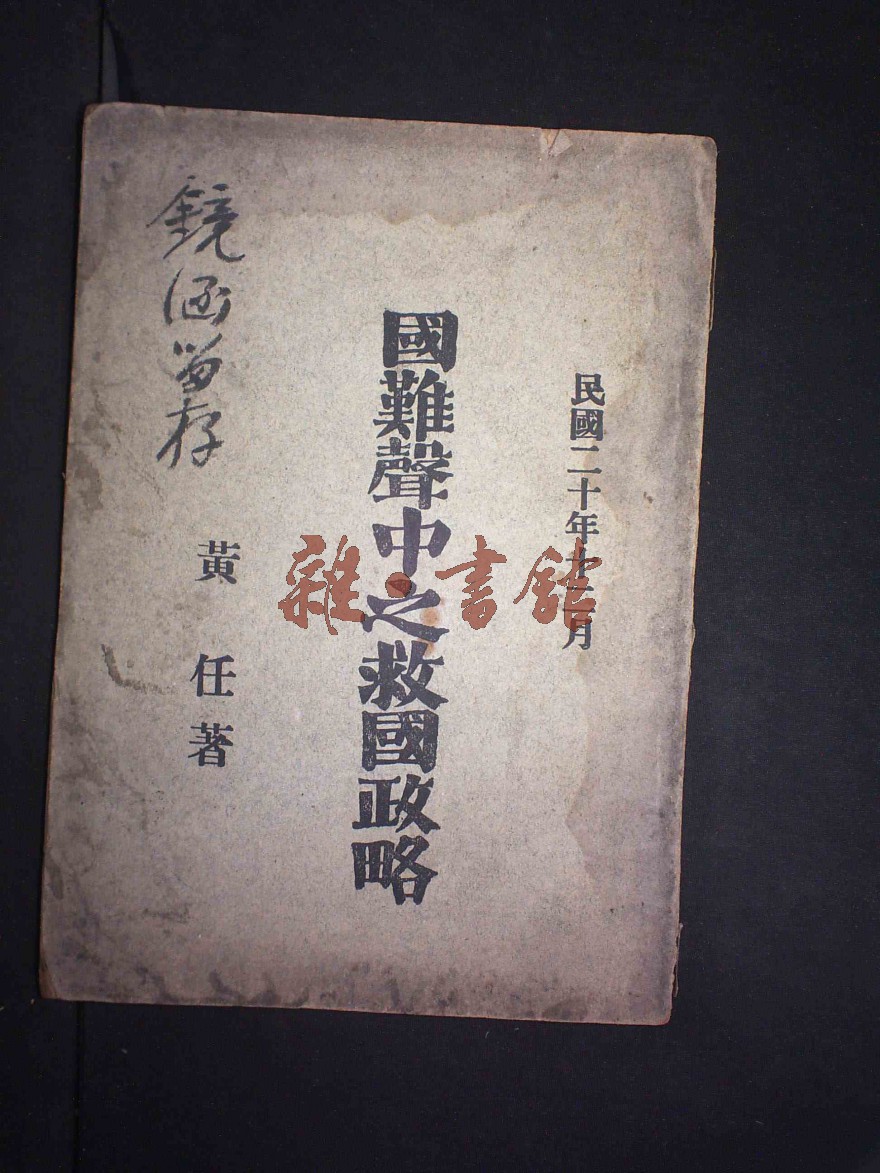 民國二十年十二月
國難聲中之救國政略
黃任著
鏡涵留存
雜·書館